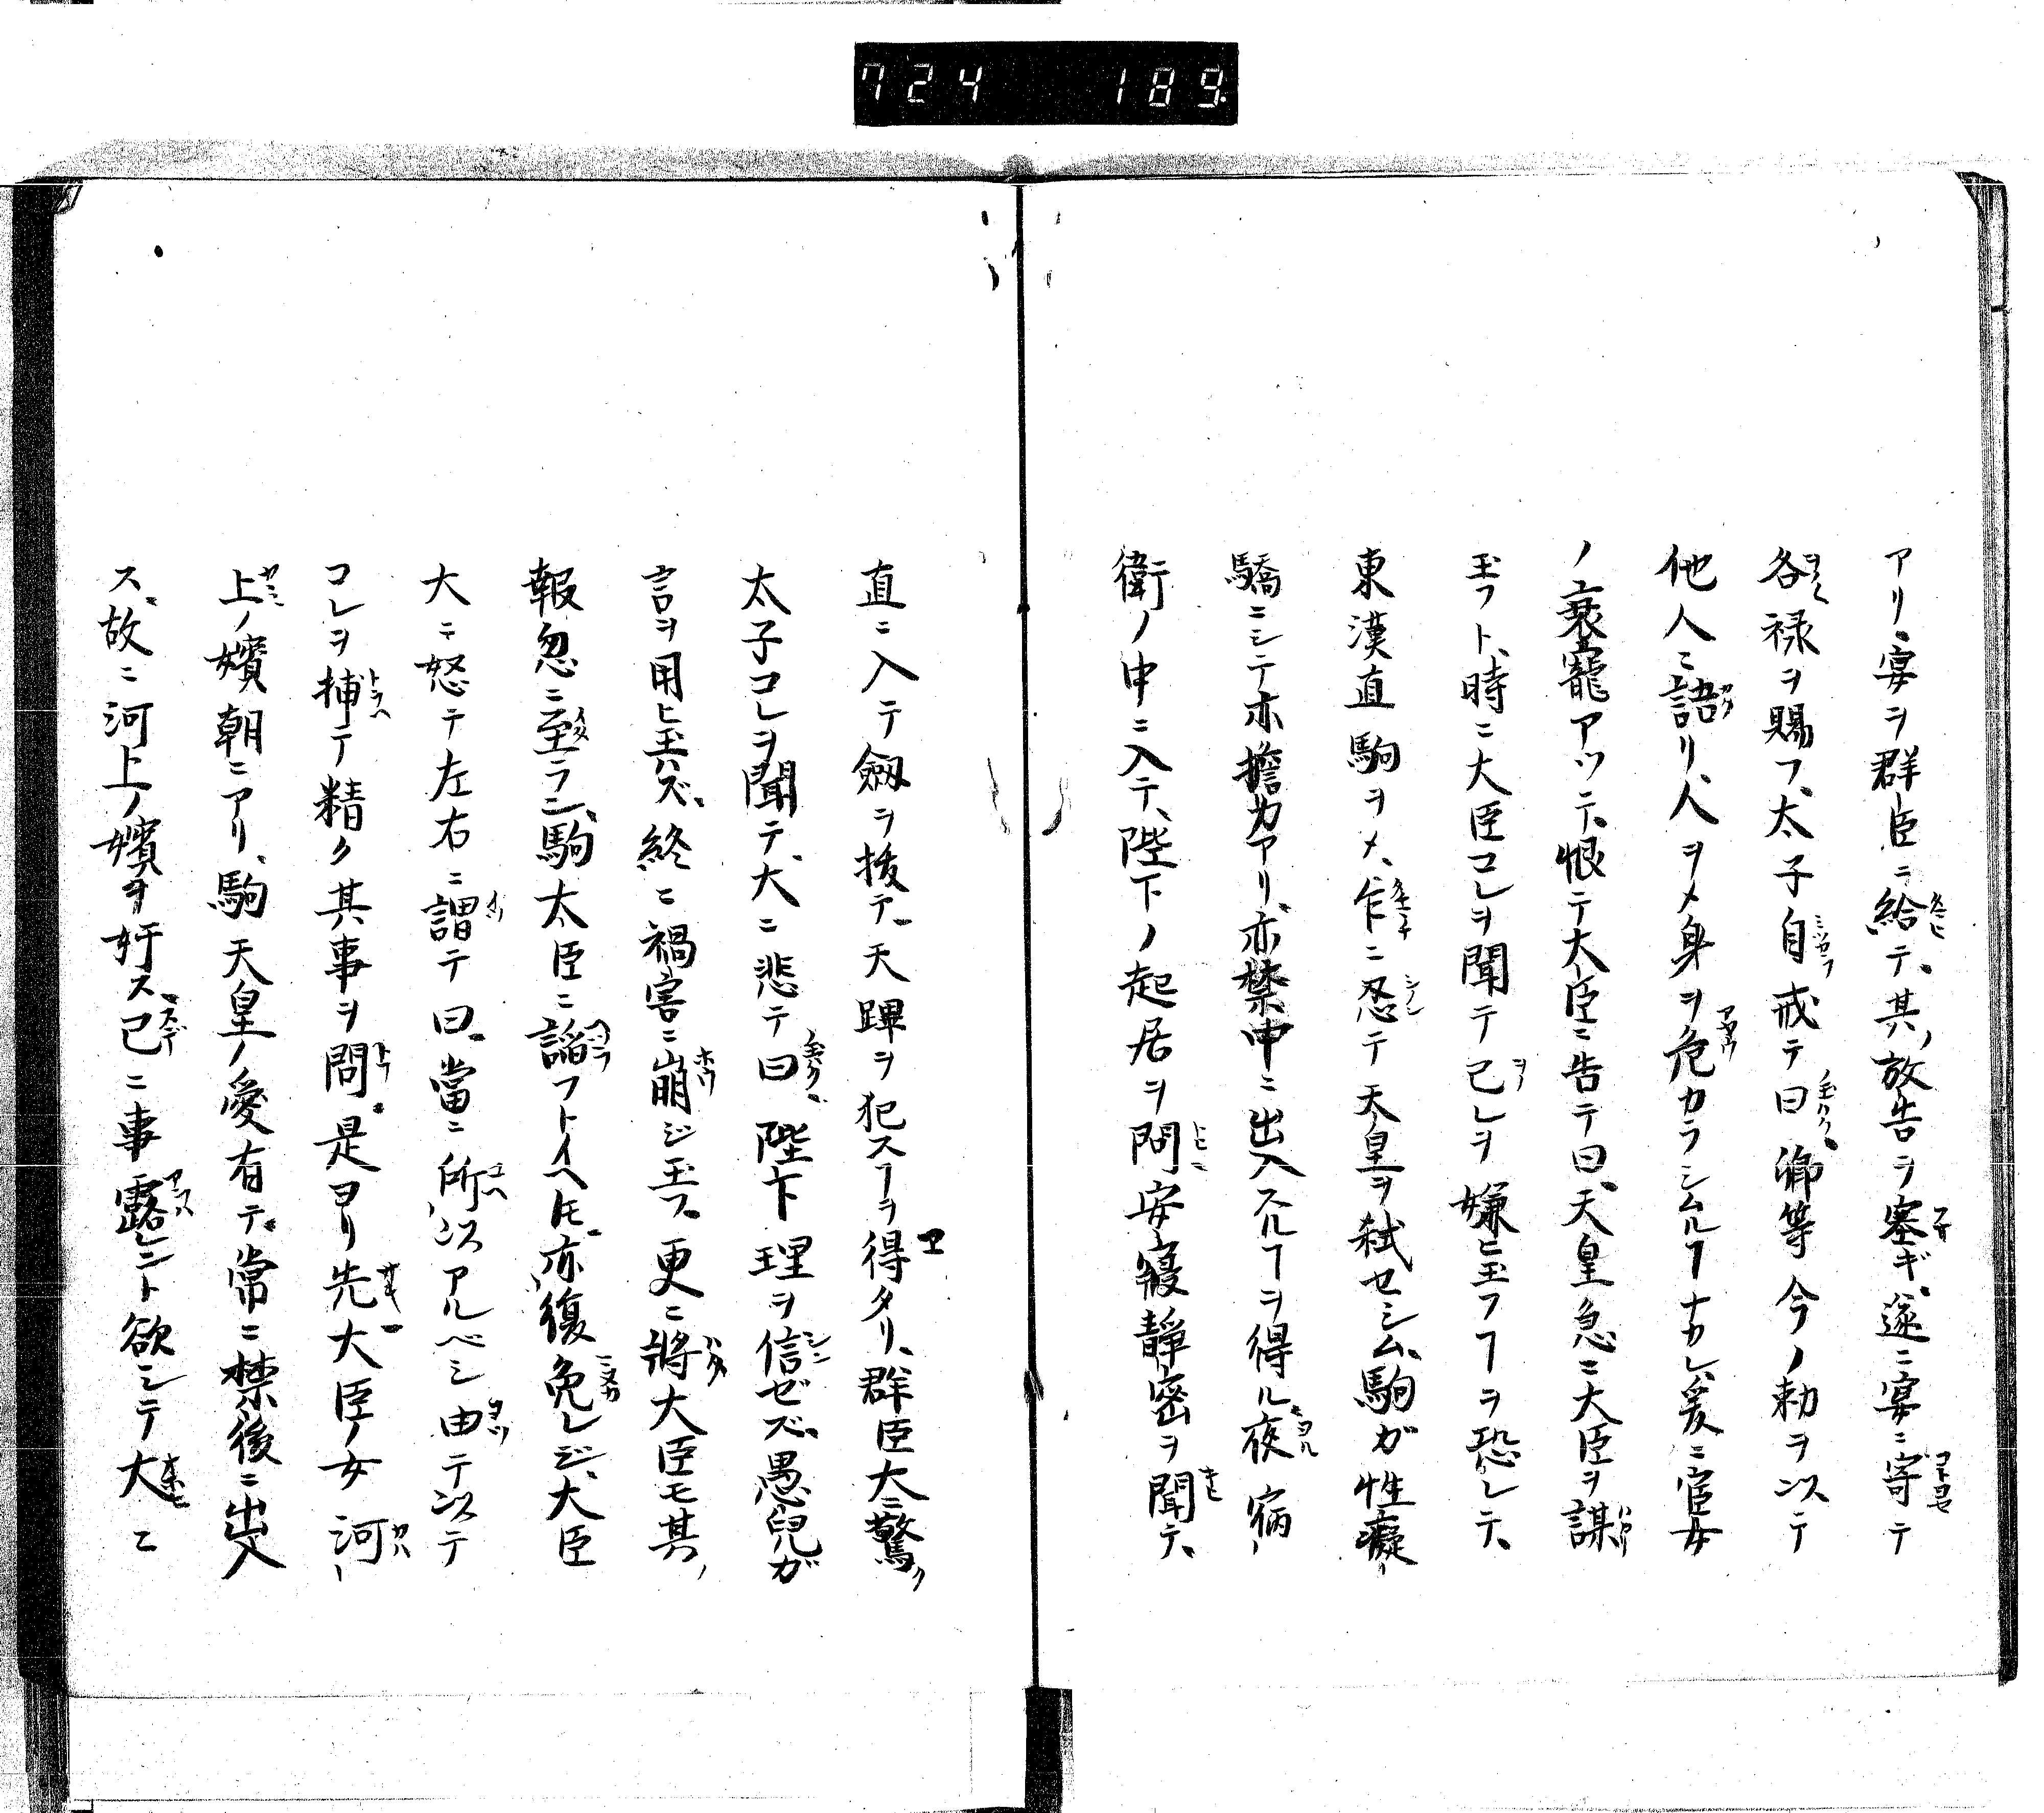 724 189
アリ、宴ヲ群臣ニ給テ、其ノ放告ヲ塞ギ、遂ニ宴ニ寄テ
各禄ヲ賜フ、太子自戒テ曰、卿等今ノ勅ヲ以テ
他人ニ語リ、人ヲメ身ヲ危カラシムルヿナカレ、爰ニ宦女
ノ衰寵アツテ、恨テ大臣ニ告テ曰、天皇急ニ大臣ヲ謀
玉フト、時ニ大臣コレヲ聞テ己レヲ嫌ヒ玉フヿヲ恐レテ、
東漢直駒ヲメ、乍ニ忍テ天皇ヲ弑セシム、駒ガ性癡
驕ニシテ亦擔力アリ、亦禁中ニ出入スルヿヲ得ル、夜宿
衛ノ中ニ入テ、陛下ノ起居ヲ問、安寝靜密ヲ聞テ、
直ニ入テ劔ヲ抜テ、天蹕ヲ犯スヿヲ得タリ、群臣大ニ驚ク
太子コレヲ聞テ、大ニ悲テ曰、陛下理ヲ信ゼズ、愚兒ガ
言ヲ用ヒ玉ハズ、終ニ禍害ニ崩ジ玉フ、更ニ將大臣モ其ノ
報忽ニ至ラン、駒太臣ニ謟フトイヘ𪜈、亦復免レジ、大臣
大ニ怒テ左右ニ謂テ曰、當ニ所以アルベシ由テ以テ
コレヲ捕テ精ク其事ヲ問、是ヨリ先大臣ノ女河
上ノ嬪朝ニアリ、駒天皇ノ愛有テ、常ニ禁後ニ出入
ス、故ニ河上ノ嬪ヲ奸ス、已ニ事露ントト欲シテ大ニ